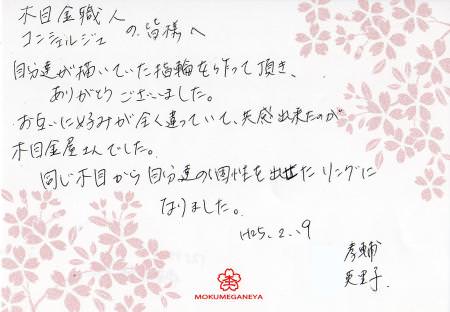 木目金職人
コンシェルジュ の 皆様へ
自分達が描いていた指輪を作って頂き、
ありがとうございました。
お互いに好みが全く違っていて、共感出来たのが
木目金屋さんでした。
同じ木目から自分達の個性を出せたリングに
なりました。
H25.2.9
彦輔
恵里子
MOKUMEGANEYA